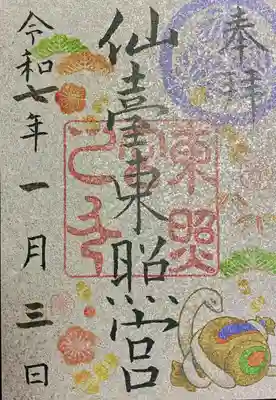 奉拝
仙臺東照宮
東照
巳年
令和七年一月三日